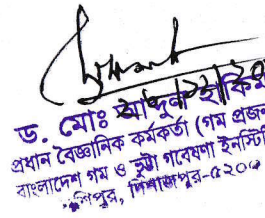 ড. মোঃ আব্দুল হাকিম
প্রধান বৈজ্ঞানিক কর্মকর্তা (গম প্রজন
বাংলাদেশ গম ও ভুট্টা গবেষণা ইনস্টি
নশিপুর, দিনাজপুর-৫২০০